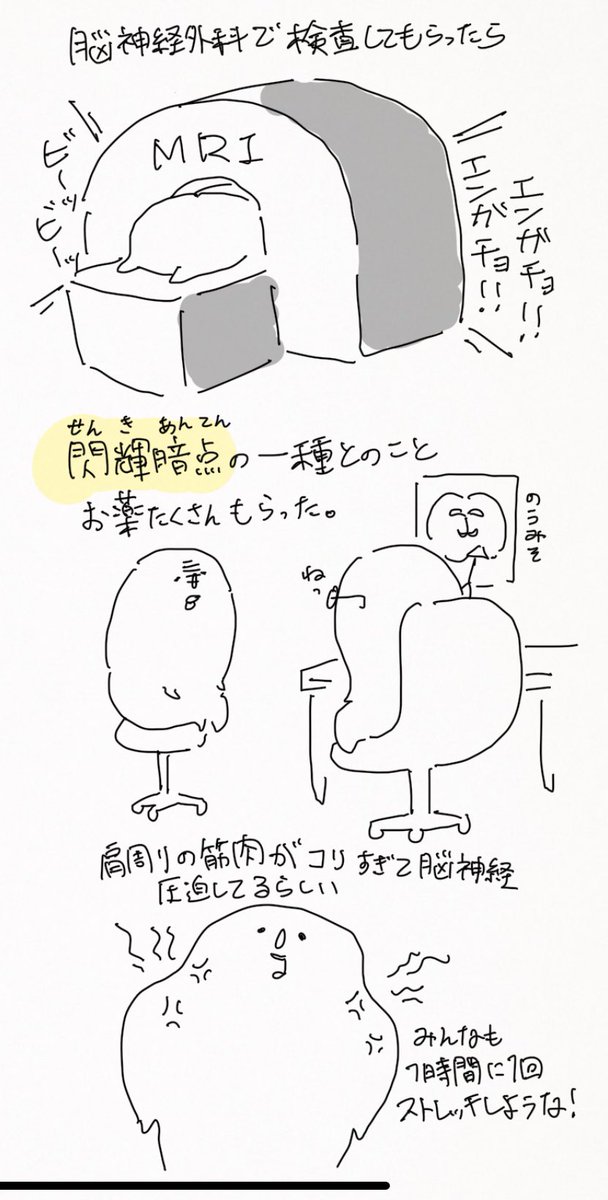 脳神経外科で検査してもらったら
MRI
ビーッ
ビーッ
エンガチョ!!
エンガチョ!!
せんきあんてん
閃輝暗点の一種とのこと
お薬たくさんもらった。
のうみそ
ねっ
肩周りの筋肉がコリすぎて脳神経
圧迫してるらしい
みんなも
1時間に1回
ストレッチしような!